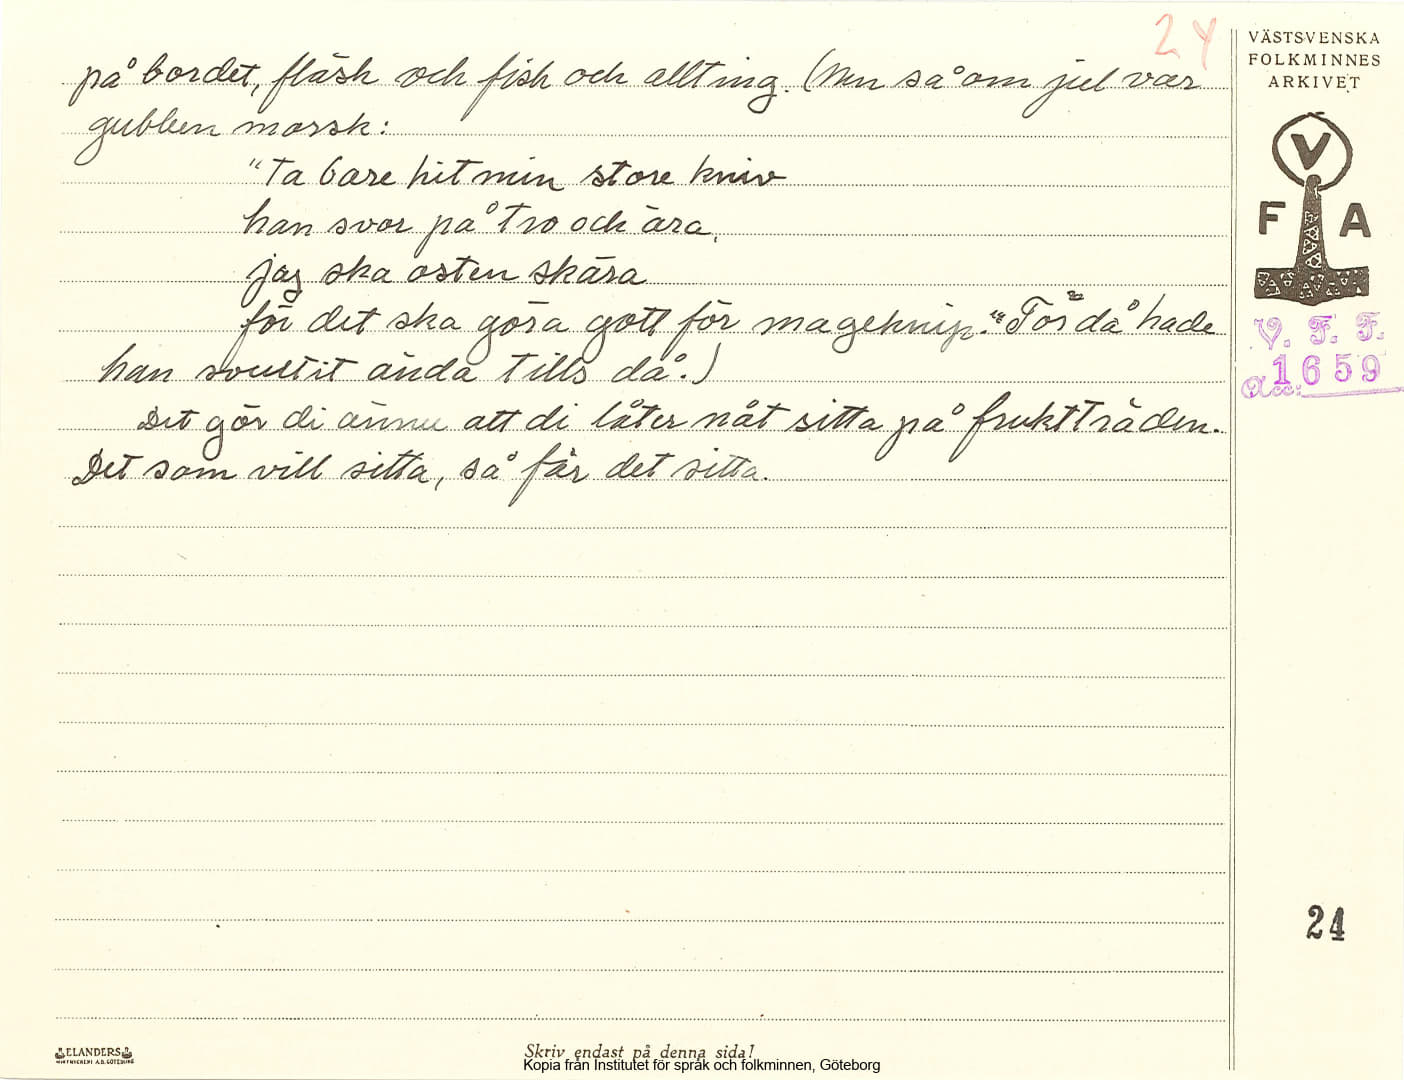 24
på bordet, fläsk och fisk och allting. (Men så om jul var
gubben morsk:
"Ta bare hit min store kniv
han svor på tro och ära,
jag ska osten skära
för det ska göra gott för mageknip." För då hade
han svultit ända tills då.)
Det gör di ännu att di låter nåt sitta på fruktträden.
Det som vill sitta, så får det sitta.
VÄSTSVENSKA
FOLKMINNES
ARKIVET
V
F A
V. F. F.
Acc: 1659
24
ELANDERS
Skriv endast på denna sida!
Kopia från Institutet för språk och folkminnen, Göteborg